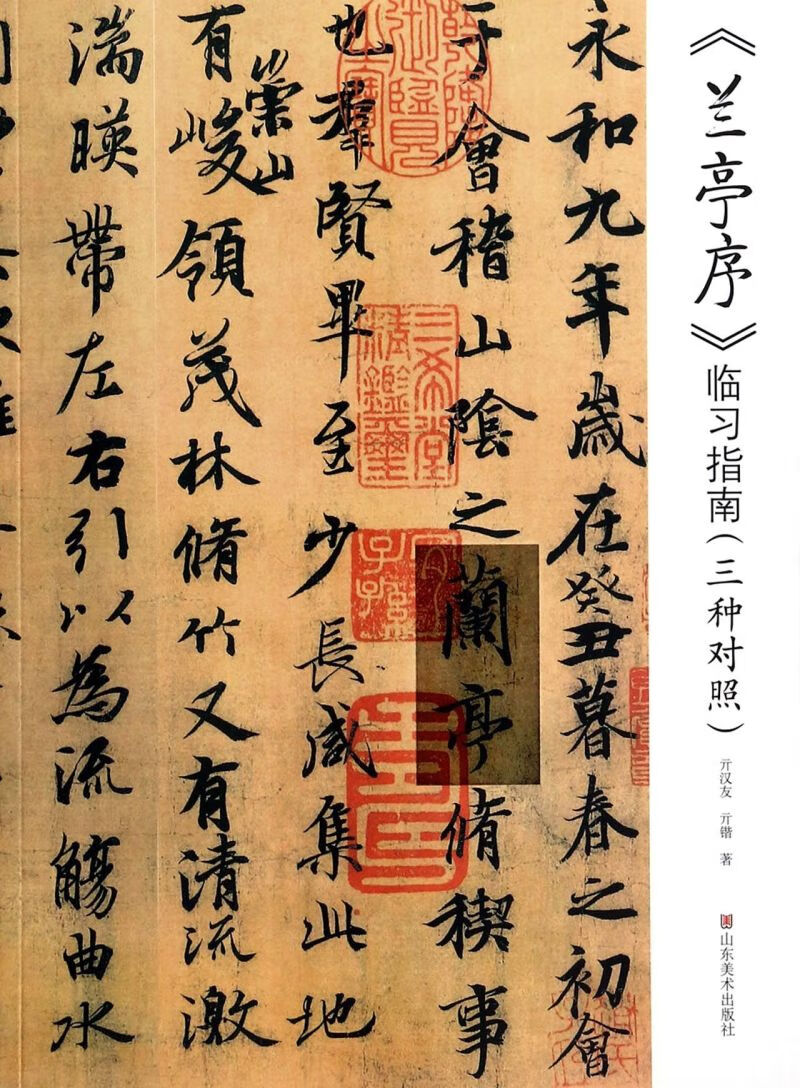 《兰亭序》临习指南(三种对照)
亓汉友 亓锴 著
山东美术出版社
永和九年歲在癸丑暮春之初會
于會稽山陰之蘭亭脩稧事
也羣賢畢至少長咸集此地
有崇山峻領茂林脩竹又有清流激
湍暎帶左右引以為流觴曲水
三希堂
精鑑璽
宜
子孫